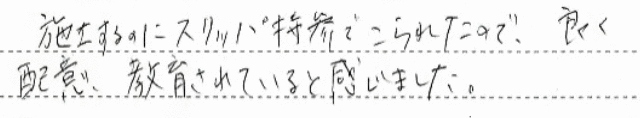 施工するのにスリッパ持参でこられたので、良く
配意、教育されていると感じました。